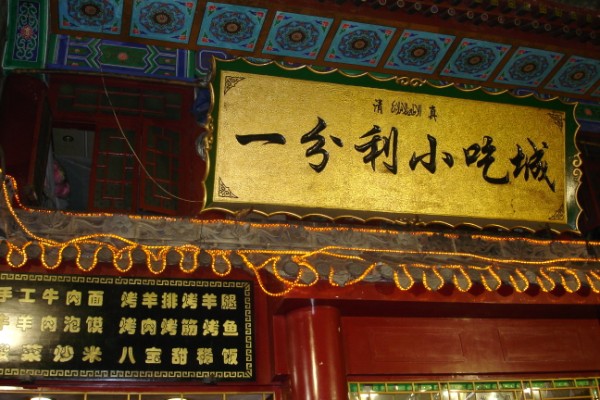 清 真
一分利小吃城
手工牛肉面 烤羊排烤羊腿
羊肉泡馍 烤肉烤筋烤鱼
菜炒米 八宝甜稀饭